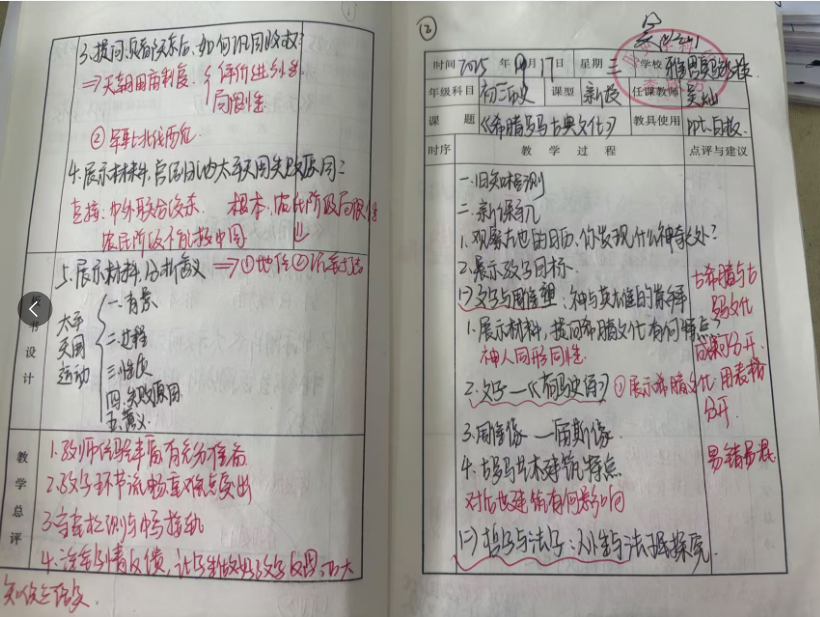 3.提问:看图表后,如何识回收权?
⇒天朝田亩制度
评价:进步性
局限性
②军事:北伐西征
4.展示材料,它归纳太平天国失败原因?
直接:中外联合绞杀.
根本:农民阶级局限性
农民阶级不能救中国
5.展示材料,分析意义
⇒①地位②沉重打击
太平天国运动
一.背景
二.过程
三.性质
四.失败原因
五.意义
书
设
计
教
学
总
评
1.教师经验丰富有充分准备
2.教学环节流畅重难点突出
3.
4.注重学情反馈,让学生做好
②
时间 2025 年 月17日 星期 三 学校
年级科目 初三历史 课型 新授 任课教师
课 题 《希腊罗马古典文化》 教具使用 PPT、白板
时序 教 学 过 程 点评与建议
一.旧知检测
二.新课导入
1.观察古巴的日历,你发现什么神奇之处?
2.展示教学目标.
(一)文学与雕塑:神与英雄的赞歌
1.展示材料,提问希腊文化有何特点?
神人同形同性.
2.文学—《荷马史诗》
①展示希腊文化:用表格
分开
3.雕像 —
4.古罗马艺术建筑特点
对后世建筑有何影响
(二)哲学与法学:人生与法理探究.
古希腊与古
罗马文化
成就分开.
易错易混